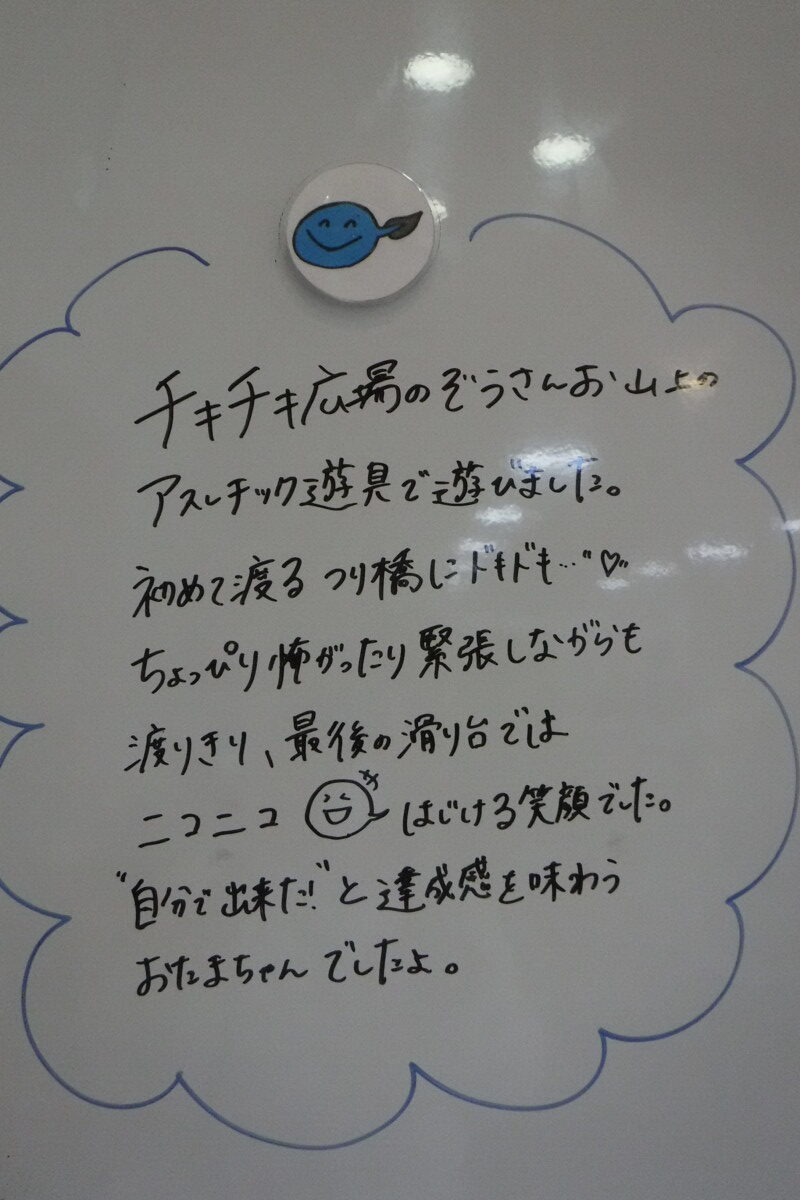 チキチキ広場のぞうさんお山上の
アスレチック遊具で遊びました。
初めて渡るつり橋にドキドキ…♡
ちょっぴり怖がったり緊張しながらも
渡りきり、最後の滑り台では
ニコニコ はじける笑顔でした。
"自分で出来た!"と達成感を味わう
おたまちゃんでしたよ。